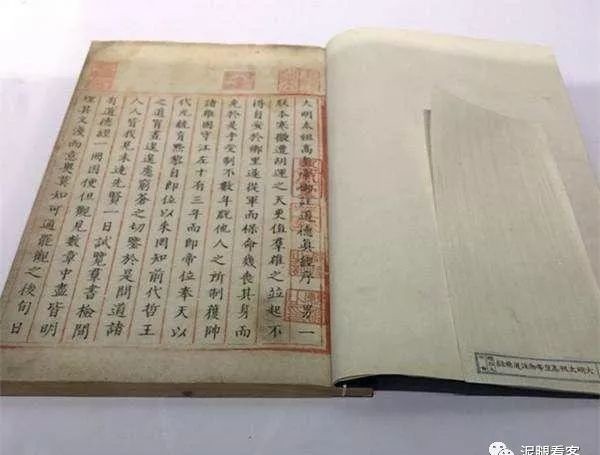 大明太祖高皇帝御註道德眞經序 男一
朕本寒微遭胡運之天更值羣雄之並起不
得自安於鄉里遂從軍而保命幾喪其身而
免於是乎受制不數年脫他人之所制獲帥
諸雄固守江左十有三年而即帝位奉天以
代元統育黔黎自即位以來罔知前代哲王
之道宵晝遑遑慮穹蒼之切鑒於是問道諸
人人皆我見未達先賢一日試覽羣書檢間
有道德經一冊因便但觀見數章中盡皆明
理其文淺而意奧莫如可通罷觀之後旬日
泥腿看客